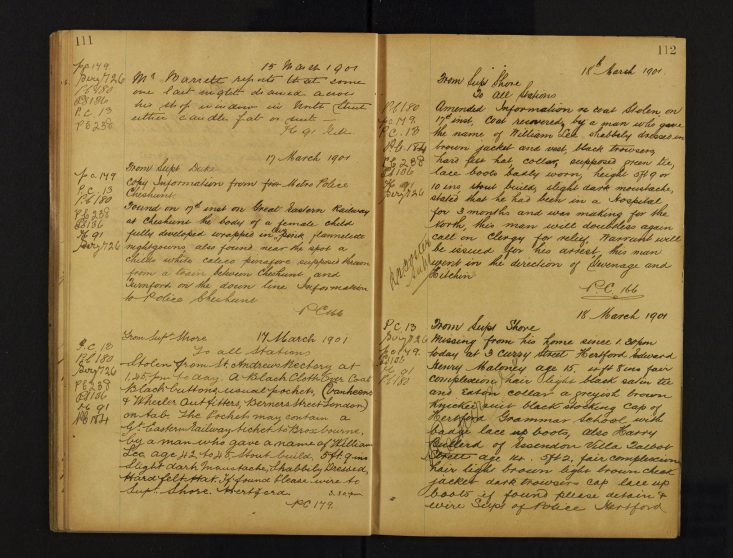 111
15 March 1901
Mr Barrett reports that some
one last night smeared across
his shop window in North Street
either candle fat or suet —
H 91
pc 149
Serg 726
PC 180
PC 13
PC 238
17 March 1901
From Supt Duke
Copy Information from Metro Police
Cheshunt.
Found on 17th inst on Great Eastern Railway
at Cheshunt the body of a female child
fully developed wrapped in pink flannelette
nightgowns also found near the spot a
childs white calico pinafore supposed thrown
from a train between Cheshunt and
on the down line Information
to Police Cheshunt
PC 166
pc 149
P.C. 13
PC 180
PC 238
H 91
Serg 726
From Supt Shore 17 March 1901
To all Stations
Stolen from St Andrews Rectory at
1.25 pm to day. A Black Cloth Over Coat
Black buttons usual pockets,
& Wheeler Outfitters, Berners Street London)
on tab. The Pocket may contain a
Gt. Eastern Railway ticket to Broxbourne,
by a man who gave a name of William
Lee age 42 to 45, Stout build, 5ft 9 ins
Slight dark moustache, Shabbily Dressed,
Hard felt Hat. If found Please wire to
Supt. Shore. Hertford
PC 179
P.C 13
PC 180
Serg 726
PC 238
H 91
112
18th March 1901.
From Supt Shore
To All Stations
Amended Information re coat Stolen on
17th inst, Coat recovered, by a man who gave
the name of William Lee. shabbily dressed in
brown jacket and vest, black trousers,
hard felt hat, collar, supposed green tie,
lace boots badly worn, height 5ft 9 or
10 ins stout build, slight dark moustache,
stated that he had been in a Hospital
for 3 months and was making for the
North, this man will doubtless again
call on Clergy for relief. Warrant will
be issued for his arrest, this man
went in the direction of Stevenage and
Hitchin
P.C. 166
PC 180
pc 149
P.C. 13
PC 238
H 91
Serg 726
18 March 1901
From Supt Shore
Missing from his home since 1.30pm
today at 3 Currey Street Hertford Edward
Henry Maloney age 15, 4ft 8 ins fair
complexion, hair light black satin tie
and Eaton collar a greyish brown
Knicker suit black stocking Cap of
Hertford Grammar School with
badge lace up boots, also Harry
of Villa Talbot
Street age 14. 5ft 2, fair complexion
hair light brown light brown check
jacket dark trousers cap lace up
boots if found please detain &
wire Supt of Police Hertford
P.C. 13
Serg 726
pc 149
H 91
PC 180